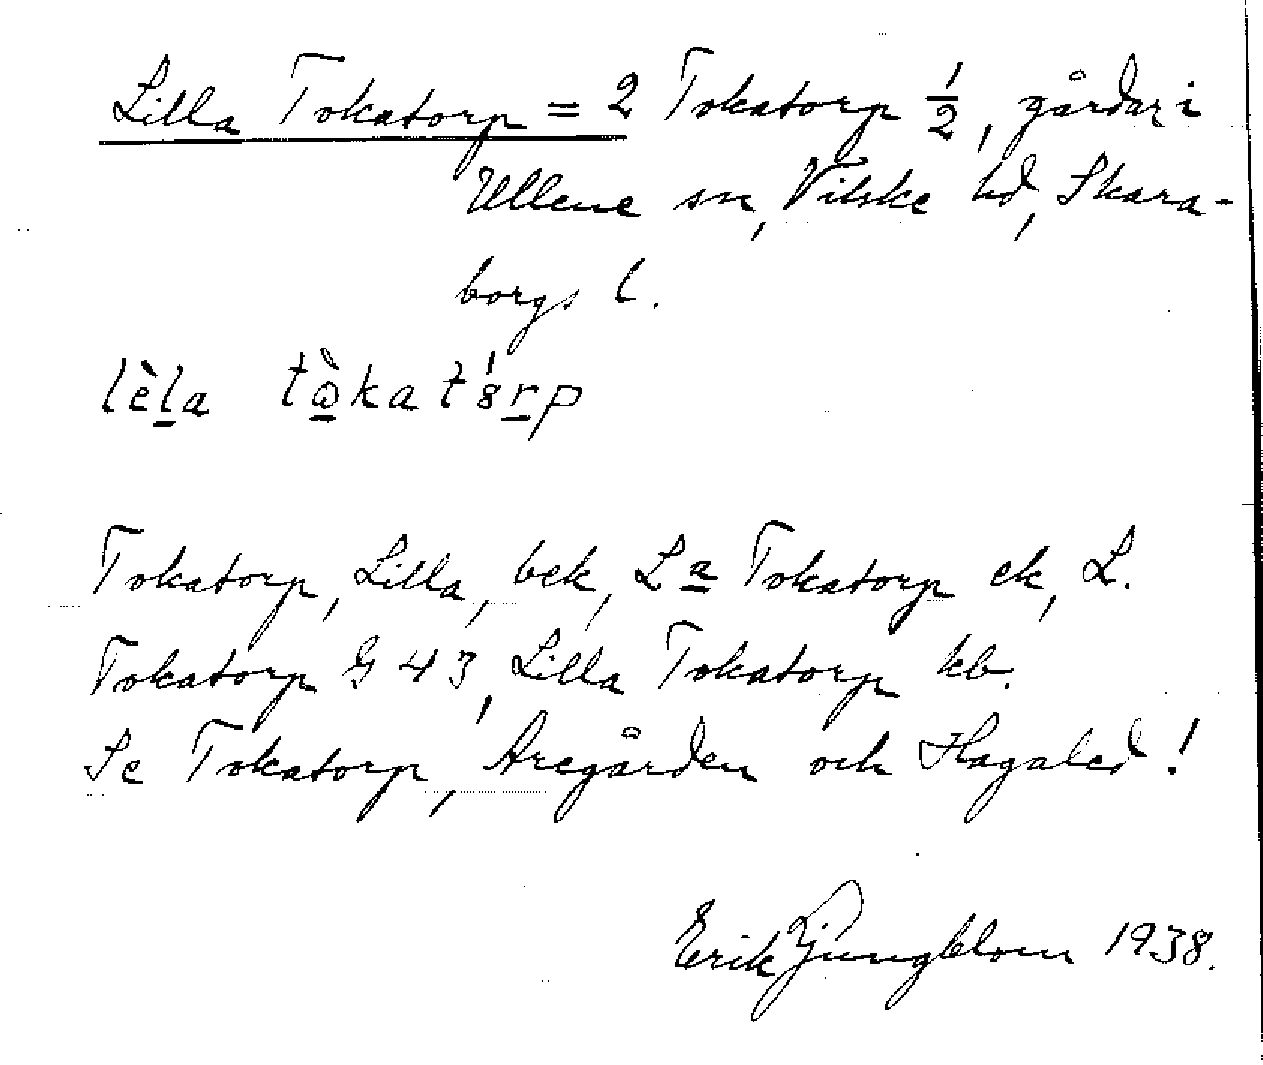 Lilla Tokatorp = 2 Tokatorp 1/2, gårdar i
Ullene sn, Vilske hd, Skara-
borgs l.
lèla tòkatórp
Tokatorp, Lilla, bek, La Tokatorp ek, L.
Tokatorp G 43, Lilla Tokatorp kb.
Se Tokatorp, Aregården och Hagaled!
Erik Ljungblom 1938.